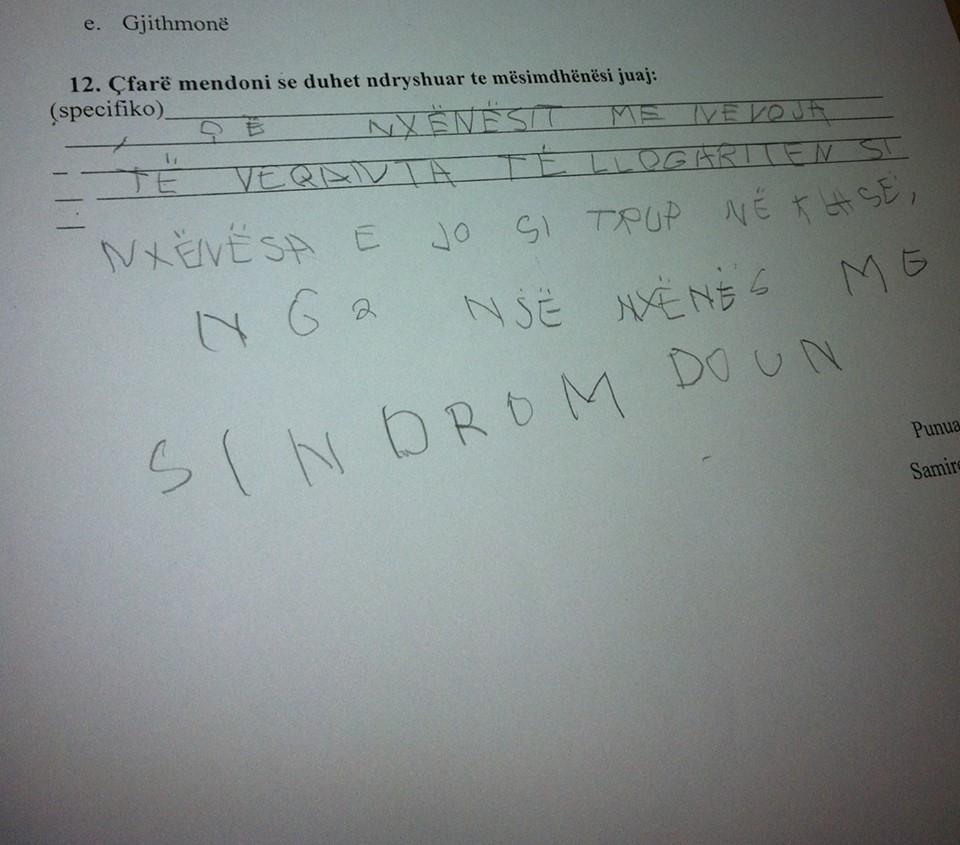 e. Gjithmonë
12. Çfarë mendoni se duhet ndryshuar te mësimdhënësi juaj:
(specifiko)
ÇË NXËNËSIT ME NEVOJA
TË VEQANTA TË LLOGARITEN SI
NXËNËSA E JO SI TRUP NË KLASË,
NGA NJË NXËNËS ME
SINDROM DOUN
Punua
Samire